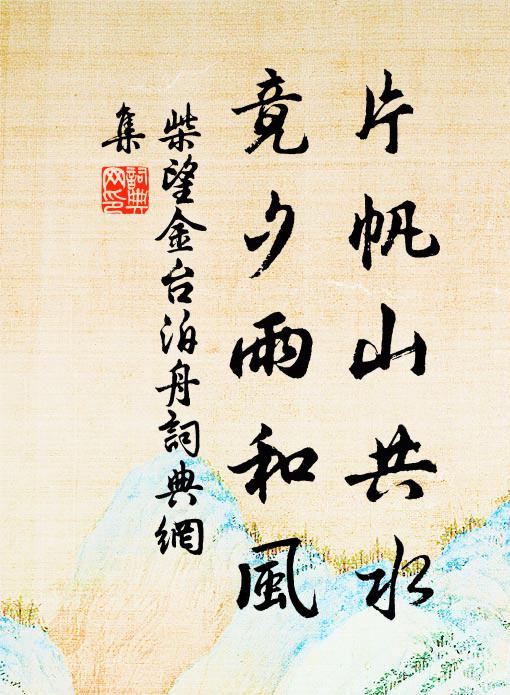 片帆山共水
竟夕雨和風
柴望金台泊舟詞典網
集
詞典
网印